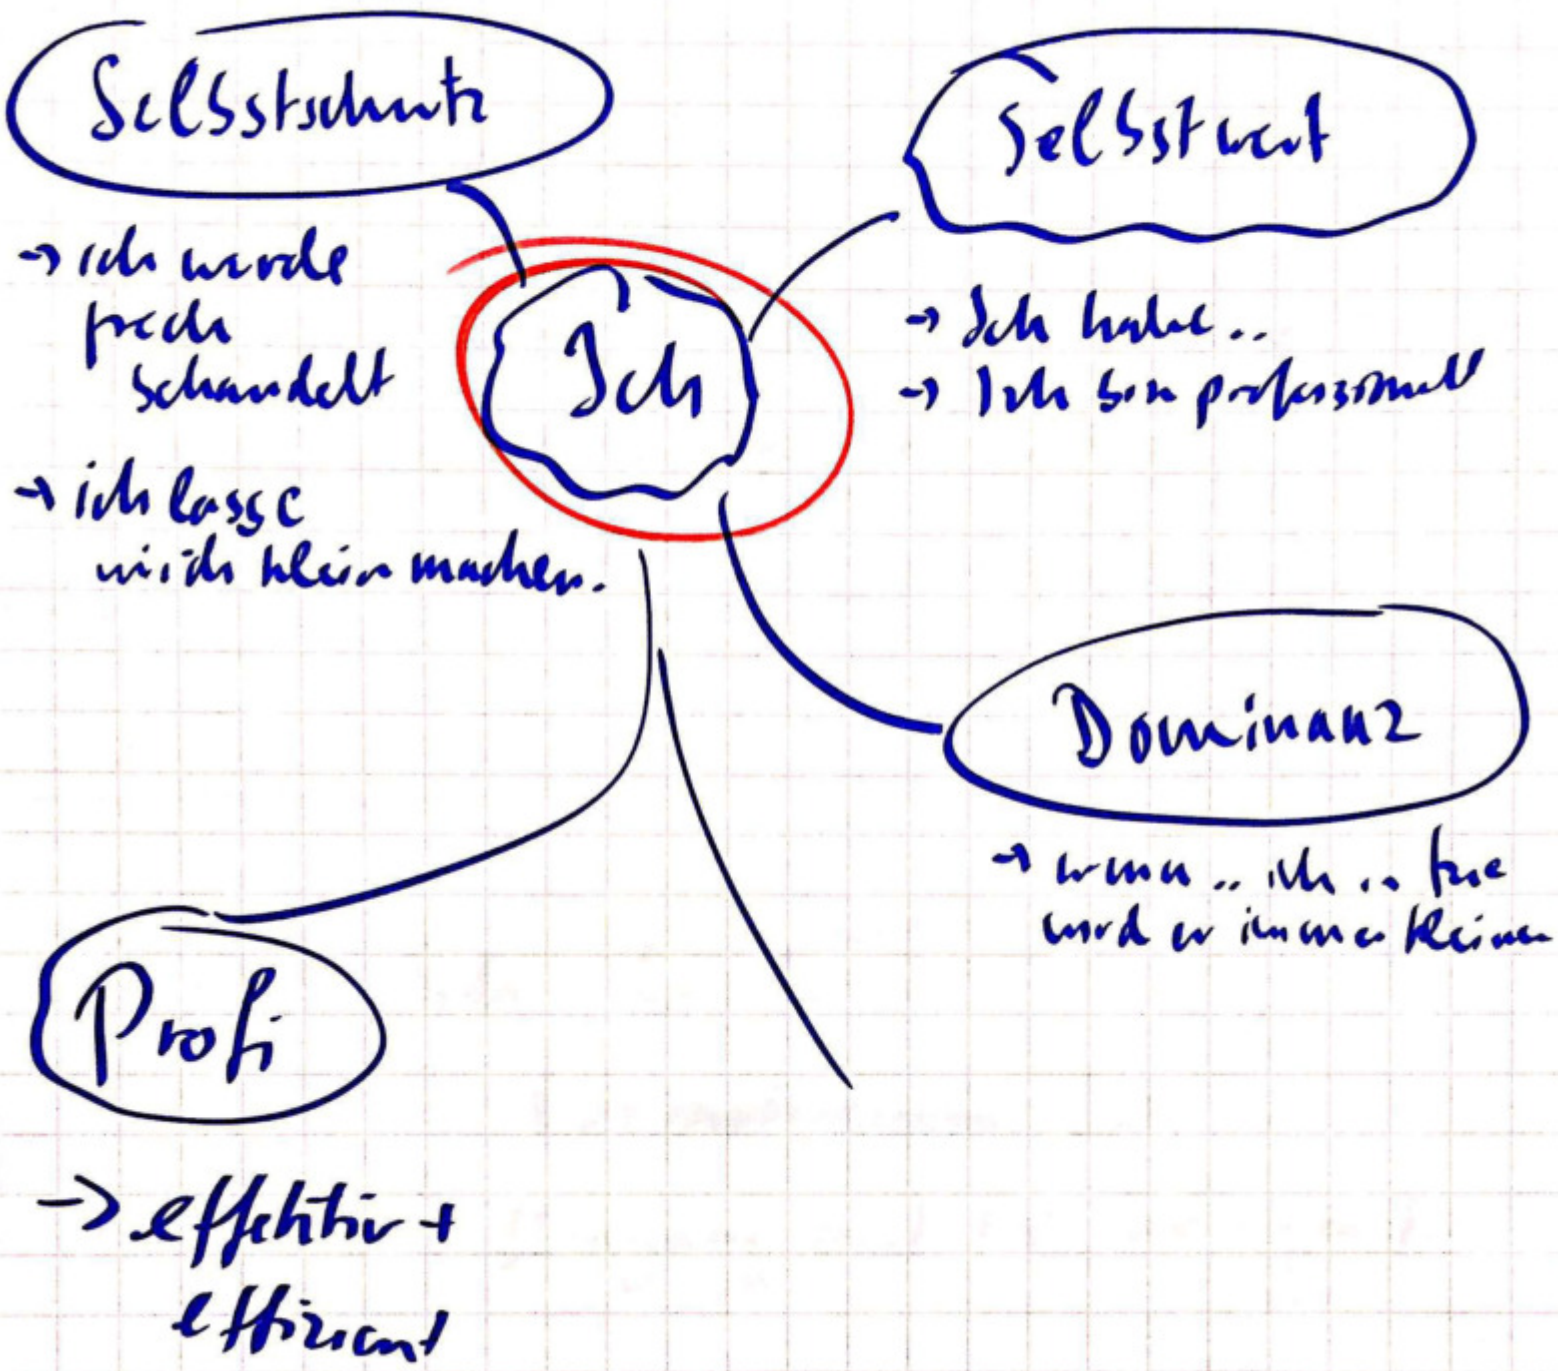 Selbstschutz
→ ich werde
frech
behandelt
→ ich lasse
mich klein machen.
Ich
Selbstwert
→ Ich habe..
→ Ich bin professionell
Dominanz
→ wenn .. ich .. tue
wird er immer kleiner
Profi
→ effektiv +
effizient